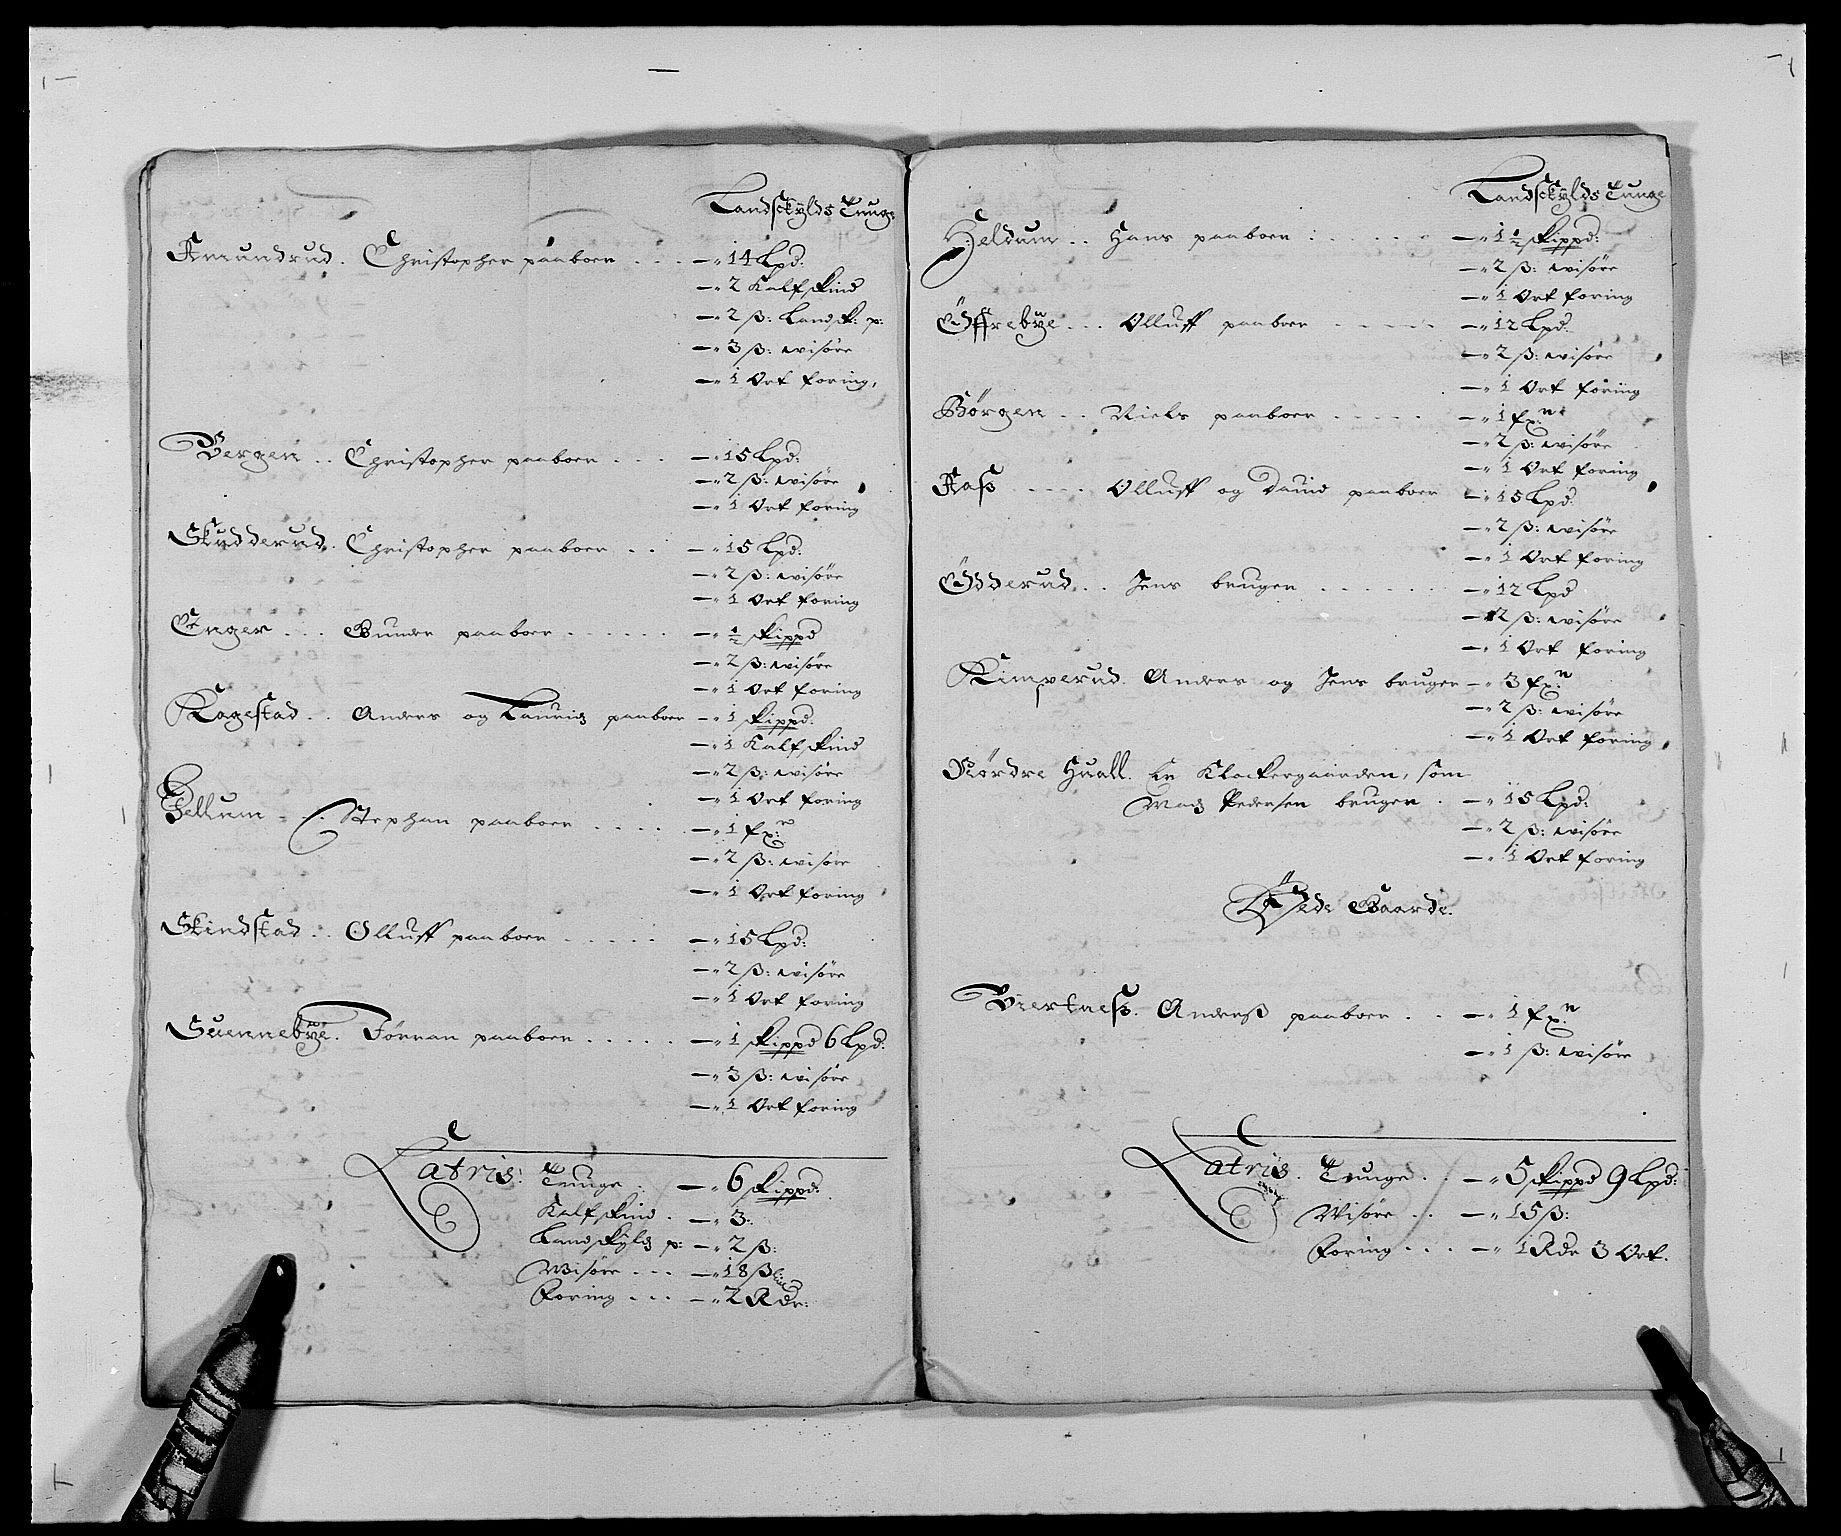 Landsckylds Tunge
Amundrud . Christopher paaboer . . . — 14 Lpd:
— 2 Kalfskind
— 2 ß: Landsk: p:
— 3 ß: wisöre
— 1 Ort foring,
Bergen . . Christopher paaboer . . . — 15 Lpd:
— 2 ß: wisöre
— 1 Ort foring
Skudderud . Christopher paaboer . . — 15 Lpd:
— 2 ß: wisöre
— 1 Ort foring
Enger . . . Gunder paaboer . . . . . . — ½ skippd
— 2 ß: wisöre
— 1 Ort foring
Kagestad . . Anders og Lauridz paaboer — 1 skippd:
— 1 Kalfskind
— 2 ß: wisöre
— 1 Ort foring
Stephan paaboer . . . . . — 1 fx:
— 2 ß: wisöre
— 1 Ort foring
Skindstad . . Olluff paaboer . . . . . — 15 Lpd:
— 2 ß: wisöre
— 1 Ort foring
Suennebye . Jörran paaboer . . . . . — 1 skippd 6 Lpd:
— 3 ß: wisöre
— 1 Ort foring
Latris: Tunge . — 6 skippd:
Kalfskind . — 3:
Landskyldz p: — 2 ß:
Wisöre . . . — 18 ß
Foring . . . — 2 Rdr:
Landsckylds Tunge
Heldum . . Hans paaboer . . . . . — 1½ skippd:
— 2 ß: wisöre
— 1 Ort foring
Öffrebye . . . Olluff paaboer . . . . . — 12 Lpd:
— 2 ß: wisöre
— 1 Ort foring
Börgen . . Niels paaboer . . . . . — 1 fx:n
— 2 ß: wisöre
— 1 Ort foring
Aaß . . . . Olluff og Dauid paaboer — 15 Lpd:
— 2 ß: wisöre
— 1 Ort foring
Ödderud . . Jens bruger . . . . . . . — 12 Lpd
— 2 ß: wisöre
— 1 Ort foring
Kimperud . Anders og Jens bruger — 3 fx:n
— 2 ß: wisöre
— 1 Ort foring,
Nördre Huall . Er Klockergaarden, som
Madz Pedersen bruger . — 15 Lpd:
— 2 ß: wisöre
— 1 Ort foring
Öede Gaarde.
Biertneß . Anderß paaboer . . — 1 fx:n
— 1 ß: wisöre
Latris . Tunge . . — 5 skippd 9 Lpd:
Wisöre . . — 15 ß:
Foring . . . — 1 Rdr 3 Ort.